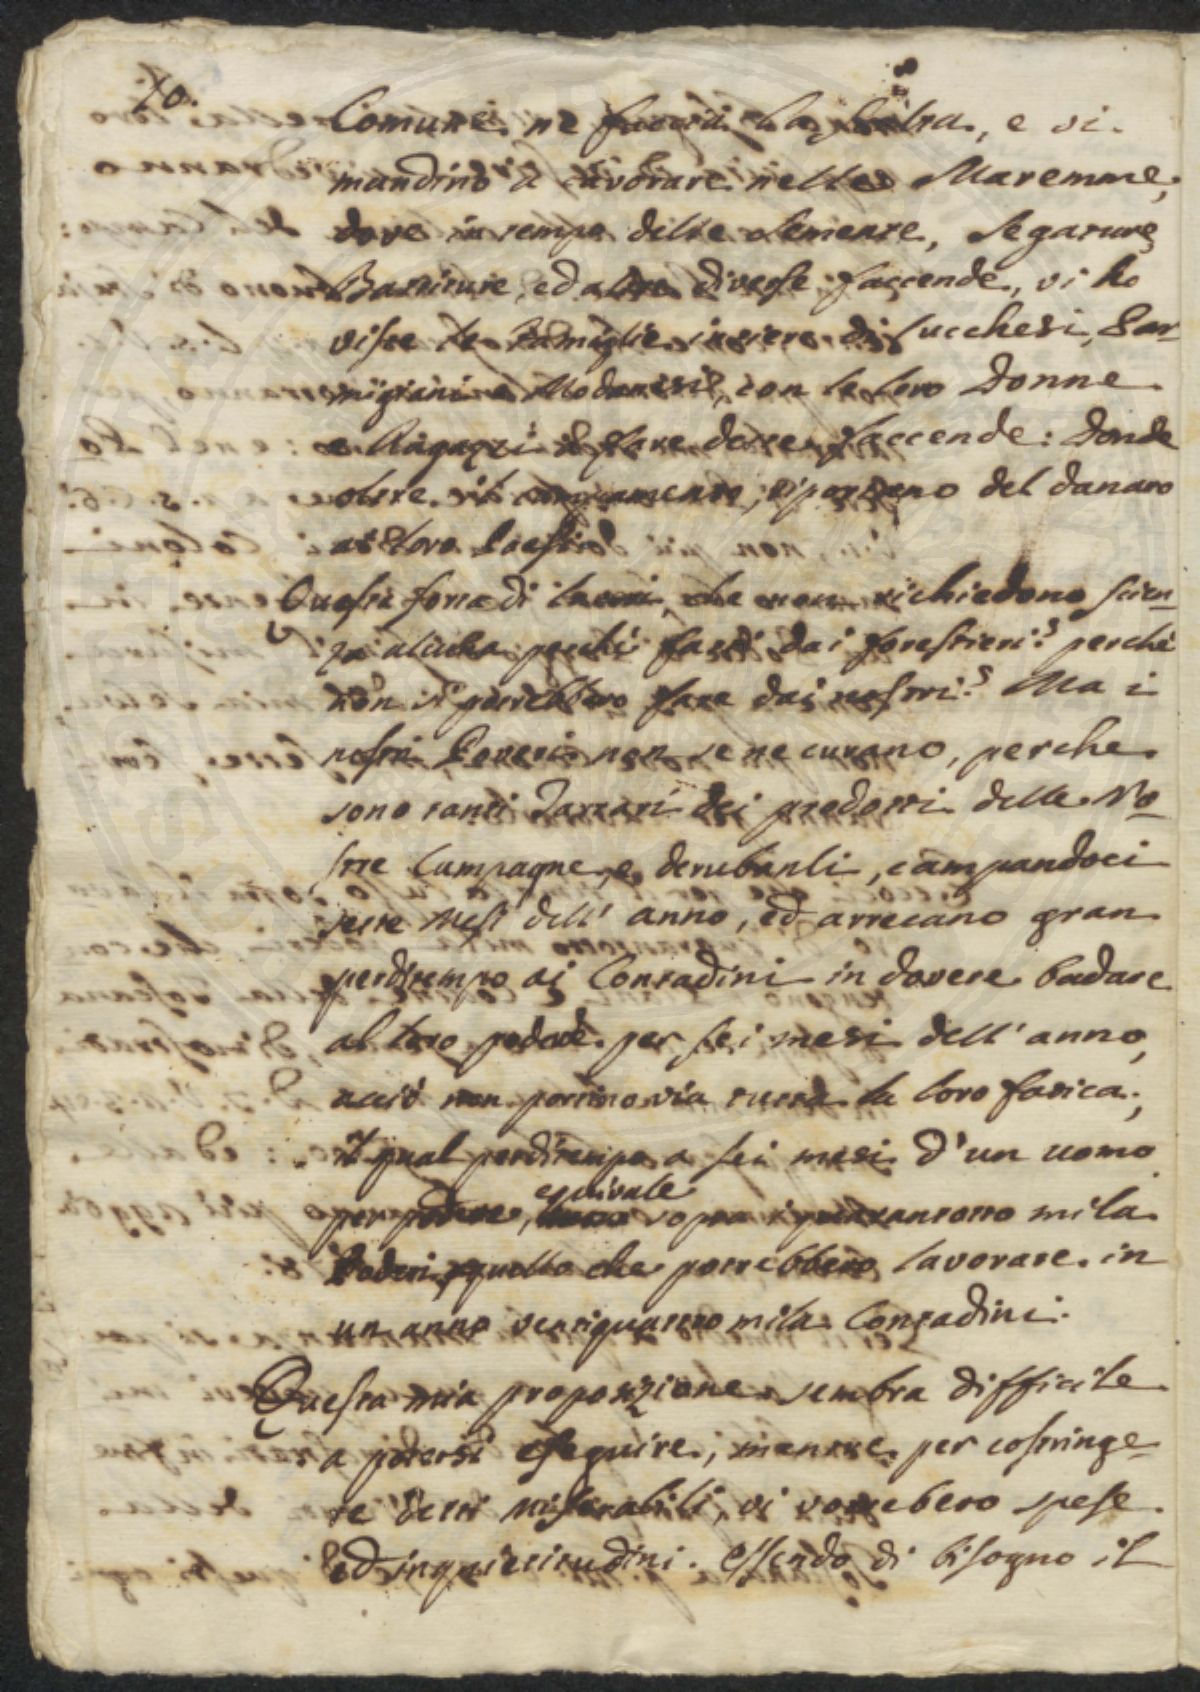 10.
Comune ne faccia la scelta, e vi
mandino a lavorare nelle Maremme,
dove in tempo delle semente, segature,
Battiture, ed altre diverse faccende, vi ho
viste le Famiglie intiere di Lucchesi, Par-
migiani e Modanesi, con le loro Donne
e Ragazzi a fare dette faccende: donde
oltre il campamento, riportano del danaro
al loro Paese
Questa sorta di lavori, che non richiedono scien-
za alcuna perchè farsi dai forestieri? perchè
non si potrebbero fare dai nostri? Ma i
nostri Poveri non se ne curano, perche
sono tanti Tartari dei prodotti delle No-
stre Campagne, e derubanli, campandoci
sette Mesi dell' anno, ed arrecano gran
perditempo ai Contadini in dovere badare
al loro podere per sei mesi dell' anno,
acciò non portino via tutta la loro fatica;
il qual perditempo a sei mesi d'un uomo
equivale
per podere, sopra i quarantotto mila
Poderi, quello che potrebbero lavorare in
un anno ventiquattro mila Contadini.
Questa mia proposizione sembra difficile
a potersi eseguire, mentre per costringe-
re detti Miserabili, vi vorrebero spese
ed inquietitudini. Essendo di bisogno il